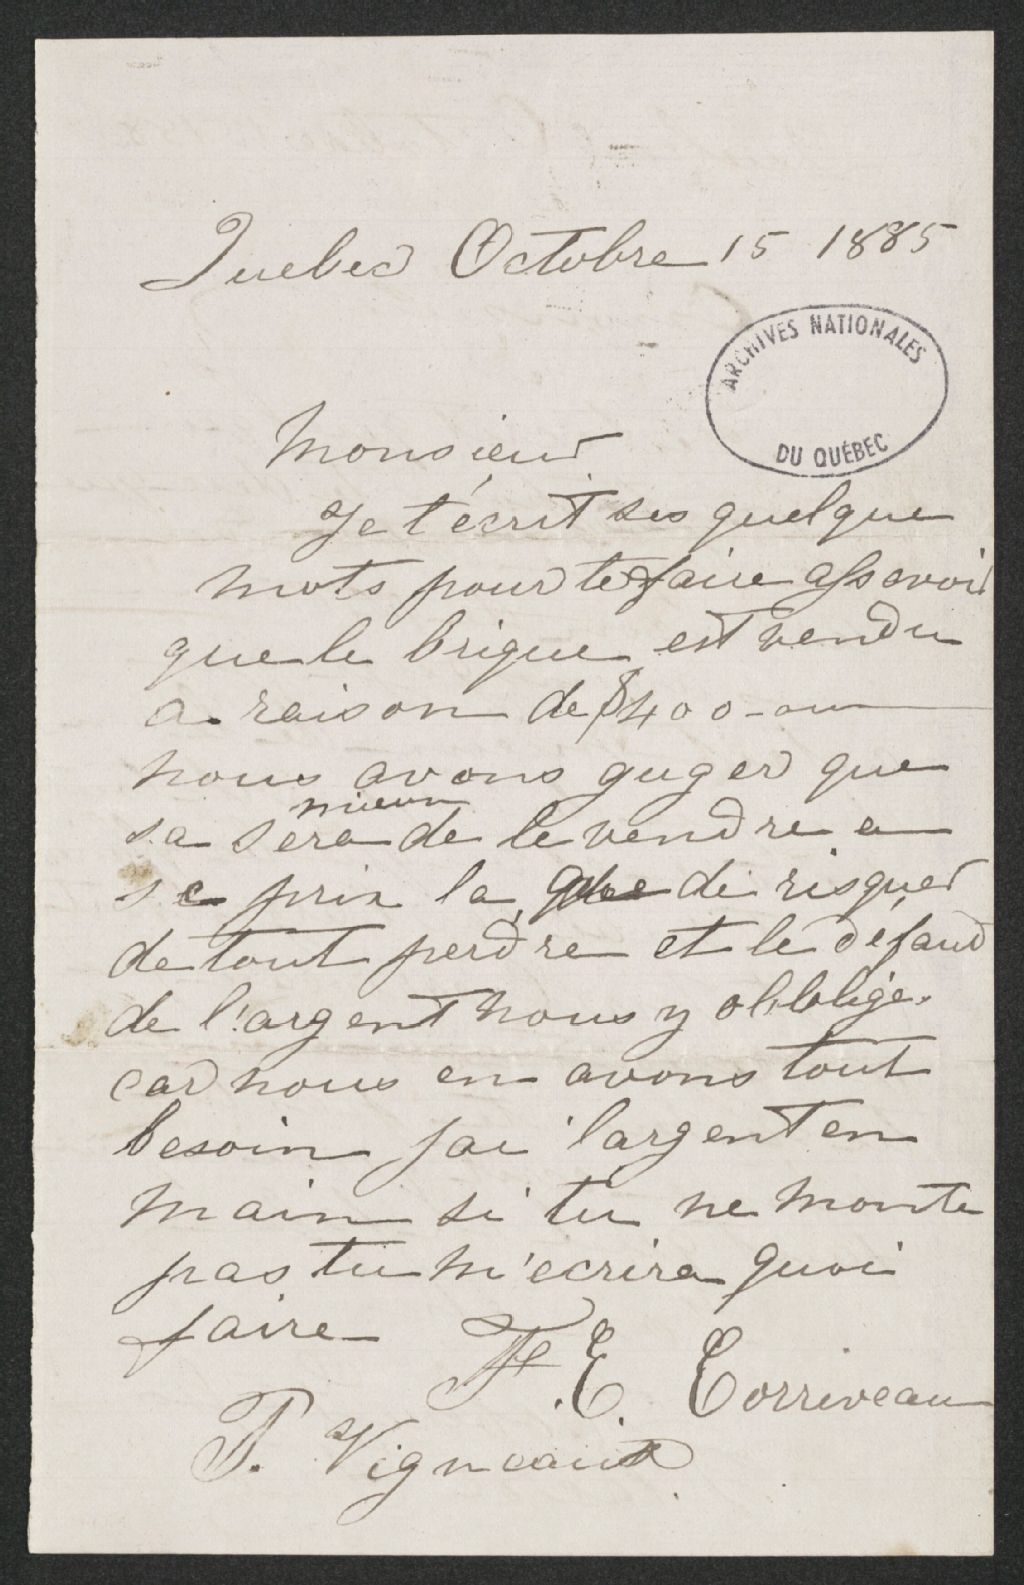 Quebec Octobre 15 1885
ARCHIVES NATIONALES
DU QUÉBEC
Monsieur
Je t'écrit ses quelque
mots pour te faire assavoir
que le brique est vendu
a raison de $400 -
nous avons guger que
mieux
sa sera de le vendre a
se prix la que de risquer
de tout perdre et le défaud
de l'argent nous y oblblige.
car nous en avons tout
besoin jai l'argent en
main si tu ne monte
pas tu m'ecrira quoi
faire
F. E. Corriveau
P. Vigneault